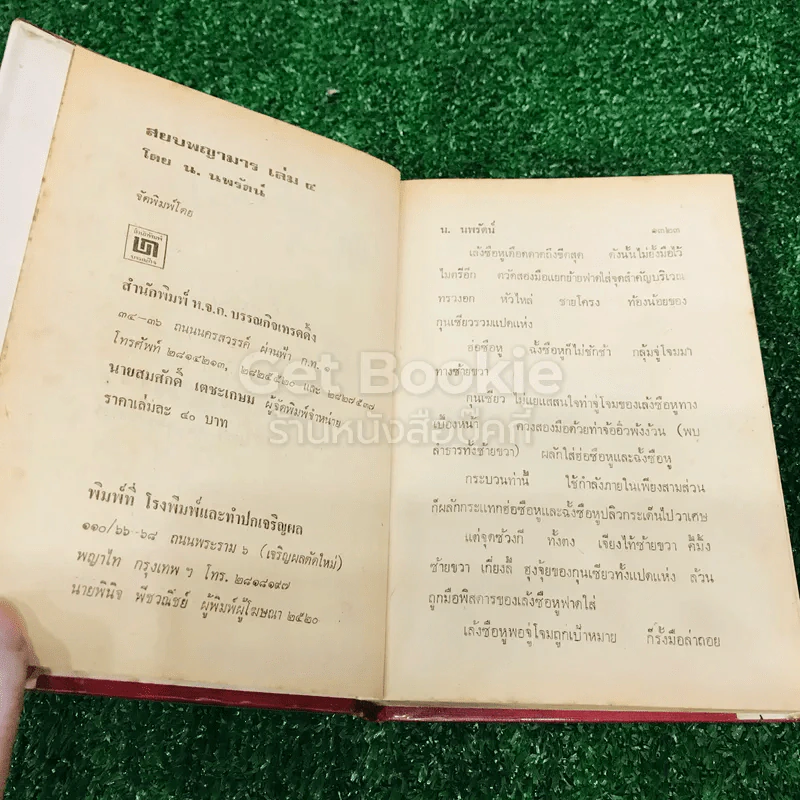 สยบพญามาร เล่ม ๔
โดย น. นพรัตน์
จัดพิมพ์โดย
สำนักพิมพ์
บรรณกิจ
สำนักพิมพ์ ห.จ.ก. บรรณกิจเทรดดิ้ง
๓๔–๓๖ ถนนนครสวรรค์ ผ่านฟ้า ก.ท. ๑
โทรศัพท์ ๒๘๑๔๒๑๓, ๒๘๒๕๕๒๐ และ ๒๘๒๗๕๓๗
นายสมศักดิ์ เตชะเกษม ผู้จัดพิมพ์จำหน่าย
ราคาเล่มละ ๔๐ บาท
พิมพ์ที่ โรงพิมพ์และทำปกเจริญผล
๑๑๐/๖๖-๖๘ ถนนพระราม ๖ (เจริญผลตัดใหม่)
พญาไท กรุงเทพ ฯ โทร. ๒๘๑๘๑๙๗
นายพินิจ พืชวณิชย์ ผู้พิมพ์ผู้โฆษณา ๒๕๒๐
น. นพรัตน์ ๑๓๒๓
เล้งซือหูเดือดดาดถึงขีดสุด ดังนั้นไม่ยั้งมือไว้
ไมตรีอีก ตวัดสองมือแยกย้ายฟาดใส่จุดสำคัญบริเวณ
ทรวงอก หัวไหล่ ชายโครง ท้องน้อยของ
กุนเซียวรวมแปดแห่ง
ฮ่อซือหู ฉั้งซือหูก็ไม่ชักช้า กลุ้มจู่โจมมา
ทางซ้ายขวา
กุนเซียว ไม่แยแสสนใจท่าจู่โจมของเล้งซือหูทาง
เบื้องหน้า ควงสองมือด้วยท่าจ้ออิ้วพ้งง้วน (พบ
ลำธารทั้งซ้ายขวา) ผลักใส่ฮ่อซือหูและฉั้งซือหู
กระบวนท่านี้ ใช้กำลังภายในเพียงสามส่วน
ก็ผลักกระแทกฮ่อซือหูและฉั้งซือหูปลิวกระเด็นไปวาเศษ
แต่จุดชัวงกี ทั้งตง เจียงไท้ซ้ายขวา คี้มึ้ง
ซ้ายขวา เกี่ยงลี้ ฮุงจุ้ยของกุนเซียวทั้งแปดแห่ง ล้วน
ถูกมือพิสดารของเล้งซือหูฟาดใส่
เล้งซือหูพอจู่โจมถูกเป้าหมาย ก็รั้งมือล่าถอย
Get Bookie
ร้านหนังสือบุ๊คกี้